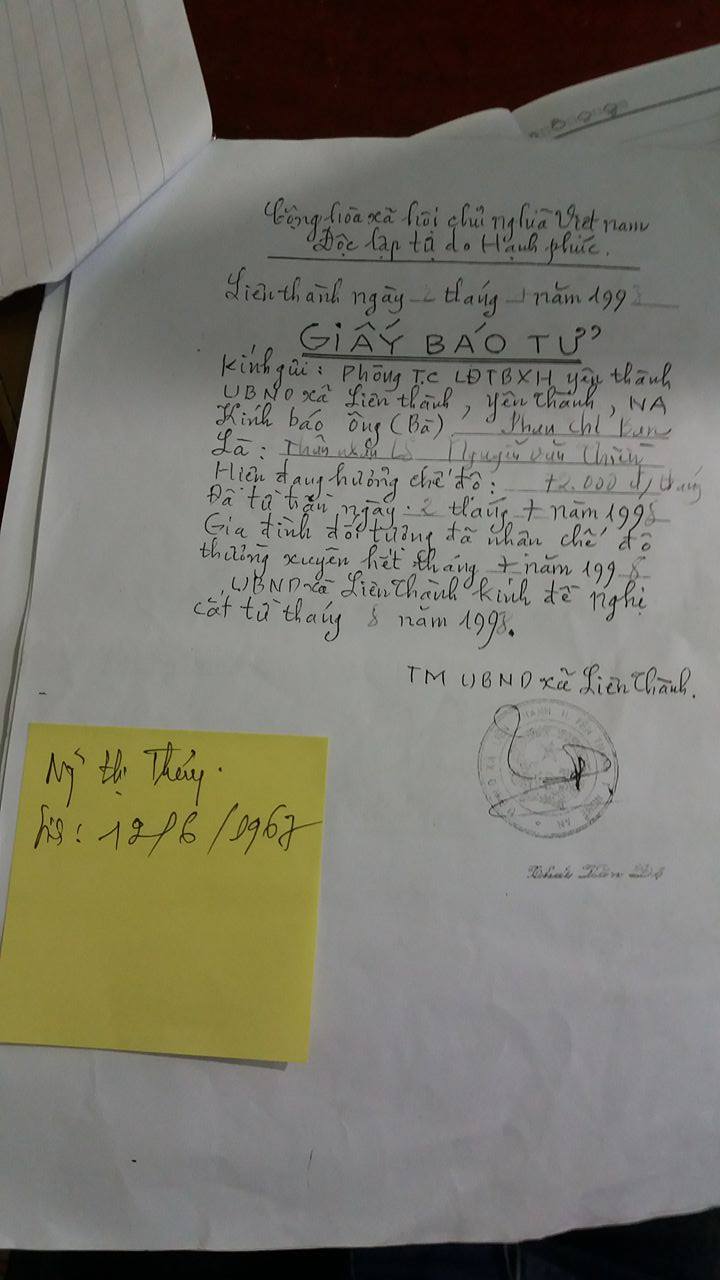 Cộng hòa xã hội chủ nghĩa Việt nam
Độc lập tự do Hạnh phúc.
Liên thành ngày 2 tháng năm 1998
GIẤY BÁO TỬ
Kính gửi: Phòng T.C LĐTBXH yên thành
UBND xã Liên thành, Yên thành, NA
Kính báo ông (Bà) Phan Chí
Là: Thân nhân LS Nguyễn văn Thiên
Hiên đang hưởng chế độ: 72.000 đ/tháng
Đã từ trần ngày 2 tháng 7 năm 1998
Gia đình đối tượng đã nhân chế độ
thường xuyên hết tháng 7 năm 1998
UBND xã Liên Thành kính đề nghị
cắt từ tháng 8 năm 1998.
TM UBND xã Liên Thành.
Ng~ thị Thủy.
12/6/1967